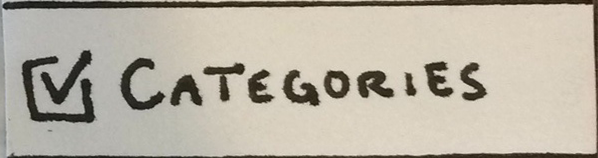 ☑ CATEGORIES